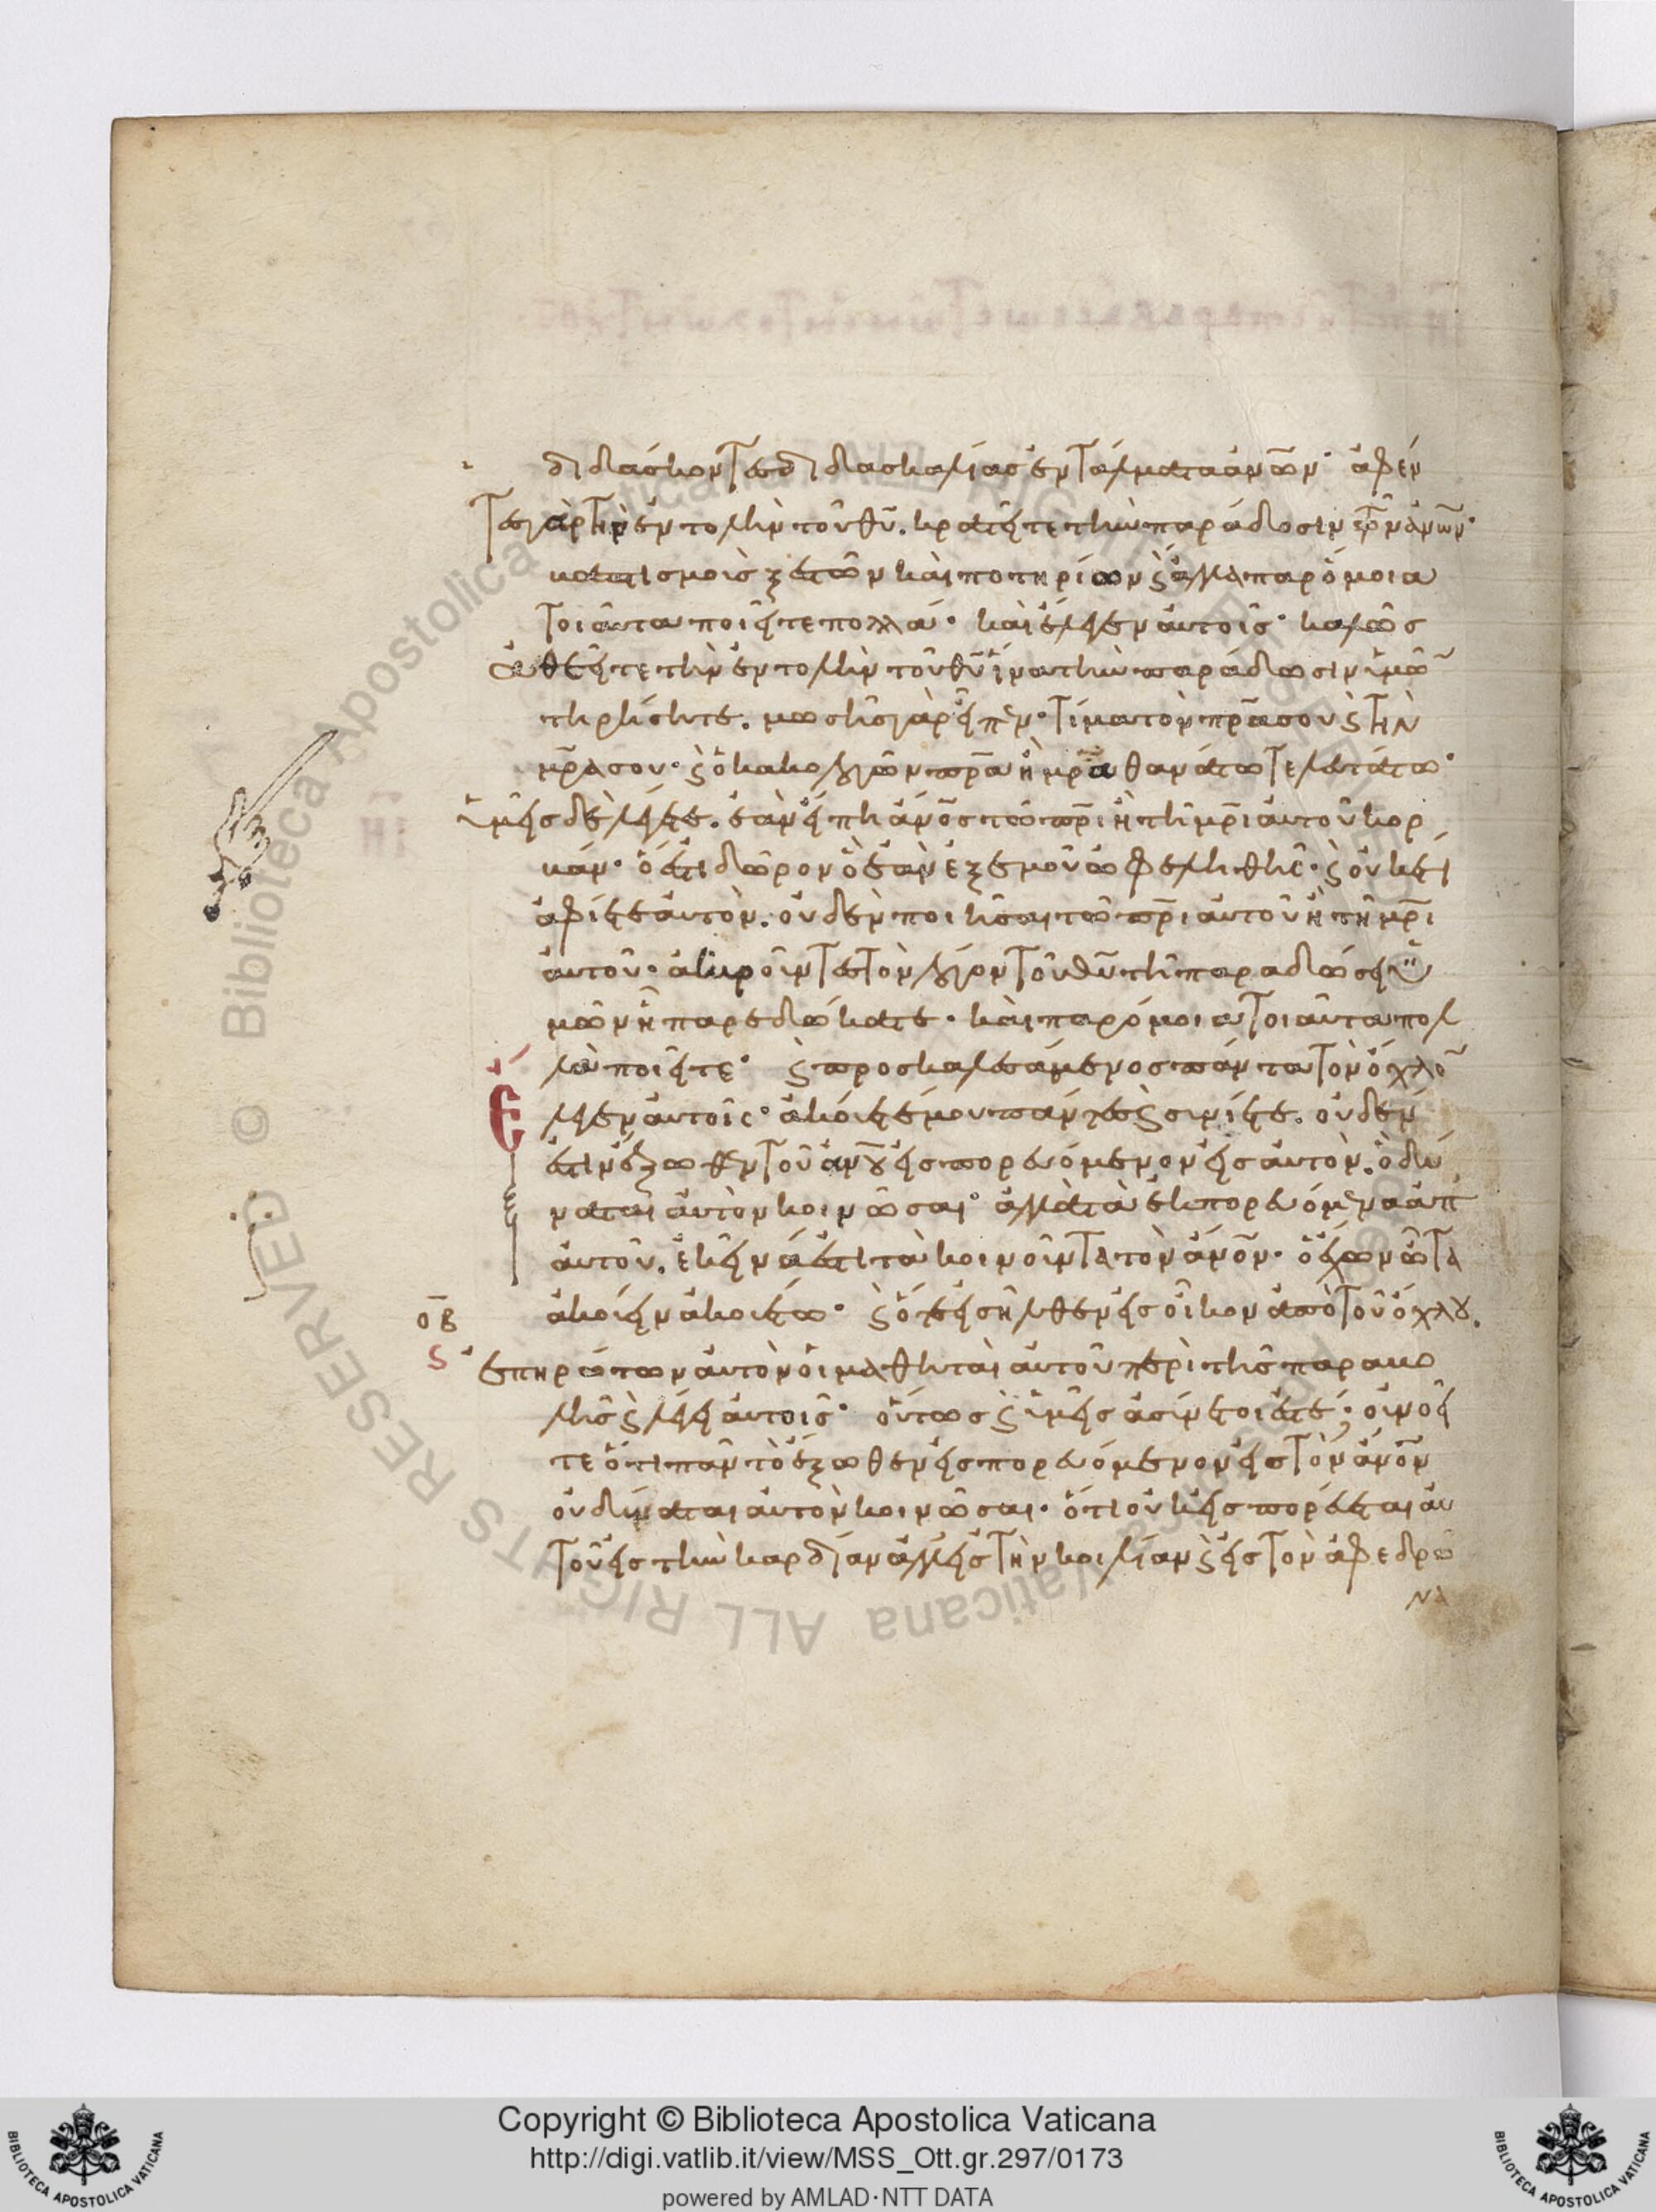 διδάσκοντες διδασκαλίας ἐντάλματα ἀν̅ων· ἀφέν
τες γὰρ τὴν ἐντολὴν τοῦ θ̅υ. κρατεῖτε τὴν παράδοσιν τῶν ἀν̅ων·
βαπτισμοὺς ξεστῶν καὶ ποτηρίων ϗ ἄλλα παρόμοια
τοιαῦτα ποιεῖτε πολλά· καὶ ἔλεγεν αὐτοῖς· καλῶς
ἀθετεῖτε τὴν ἐντολὴν τοῦ θ̅υ ἵνα τὴν παράδοσιν ὑμῶ̅
τηρήσητε. μωσῆς γὰρ εἶπεν· τίμα τὸν π̅ρα σου ϗ τὴν
μ̅ρα σου· ϗ ὁ κακολογῶν π̅ρα ἢ μ̅ρα θανάτω τελευτάτω·
ὑμεῖς δὲ λέγετε. ἐὰν εἴπη ἄν̅ος τῶ π̅ρι ἢ τῆ μ̅ρι αὐτοῦ κορ
βάν· ὅ ἐστι δῶρον ὃ ἐὰν ἐξ ἐμοῦ ὠφεληθῆς· ϗ οὐκέτι
ἀφίετε αὐτὸν. οὐδὲν ποιῆσαι τῶ π̅ρι αὐτοῦ ἢ τῆ μ̅ρι
αὐτοῦ· ἀκυροῦντες τὸν λόγον τοῦ θ̅υ τῆ παραδόσει ὑ
μῶν ἧ παρεδώκατε· καὶ παρόμοια τοιαῦτα πολ
λὰ ποιεῖτε· ϗ προσκαλεσάμενος πάντα τὸν ὄχλο̅
Ἔλεγεν αὐτοῖς· ἀκούετέ μου πάντες ϗ συνίετε. οὐδέν
ἐστιν ἔξωθεν τοῦ ἀν̅ου εἰσπορευόμενον εἰς αὐτὸν. ὃ δύ
ναται αὐτὸν κοινῶσαι· ἀλλὰ τὰ ἐκπορευόμενα ἀπ
αὐτοῦ. ἐκεῖνά ἐστι τὰ κοινοῦντα τὸν ἄν̅ον· ὁ ἔχων ὦτα
ἀκούειν ἀκουέτω· ϗ ὅτε εἰσῆλθεν εἰς οἶκον ἀπὸ τοῦ ὄχλου.
ο̅β
ς
ἐπηρώτων αὐτὸν οἱ μαθηταὶ αὐτοῦ περὶ τῆς παραβο
λῆς ϗ λέγει αὐτοῖς· οὕτως ϗ ὑμεῖς ἀσύνετοί ἐστέ; οὐ νοεῖ
τε ὅτι πᾶν τὸ ἔξωθεν εἰσπορευόμενον εἰς τὸν ἄν̅ον
οὐ δύναται αὐτὸν κοινῶσαι· ὅτι οὐκ εἰσπορεύεται αὐ
τοῦ εἰς τὴν καρδίαν ἀλλ εἰς τὴν κοιλίαν ϗ εἰς τὸν ἀφεδρῶ
να
Copyright © Biblioteca Apostolica Vaticana
http://digi.vatlib.it/view/MSS_Ott.gr.297/0173
powered by AMLAD·NTT DATA